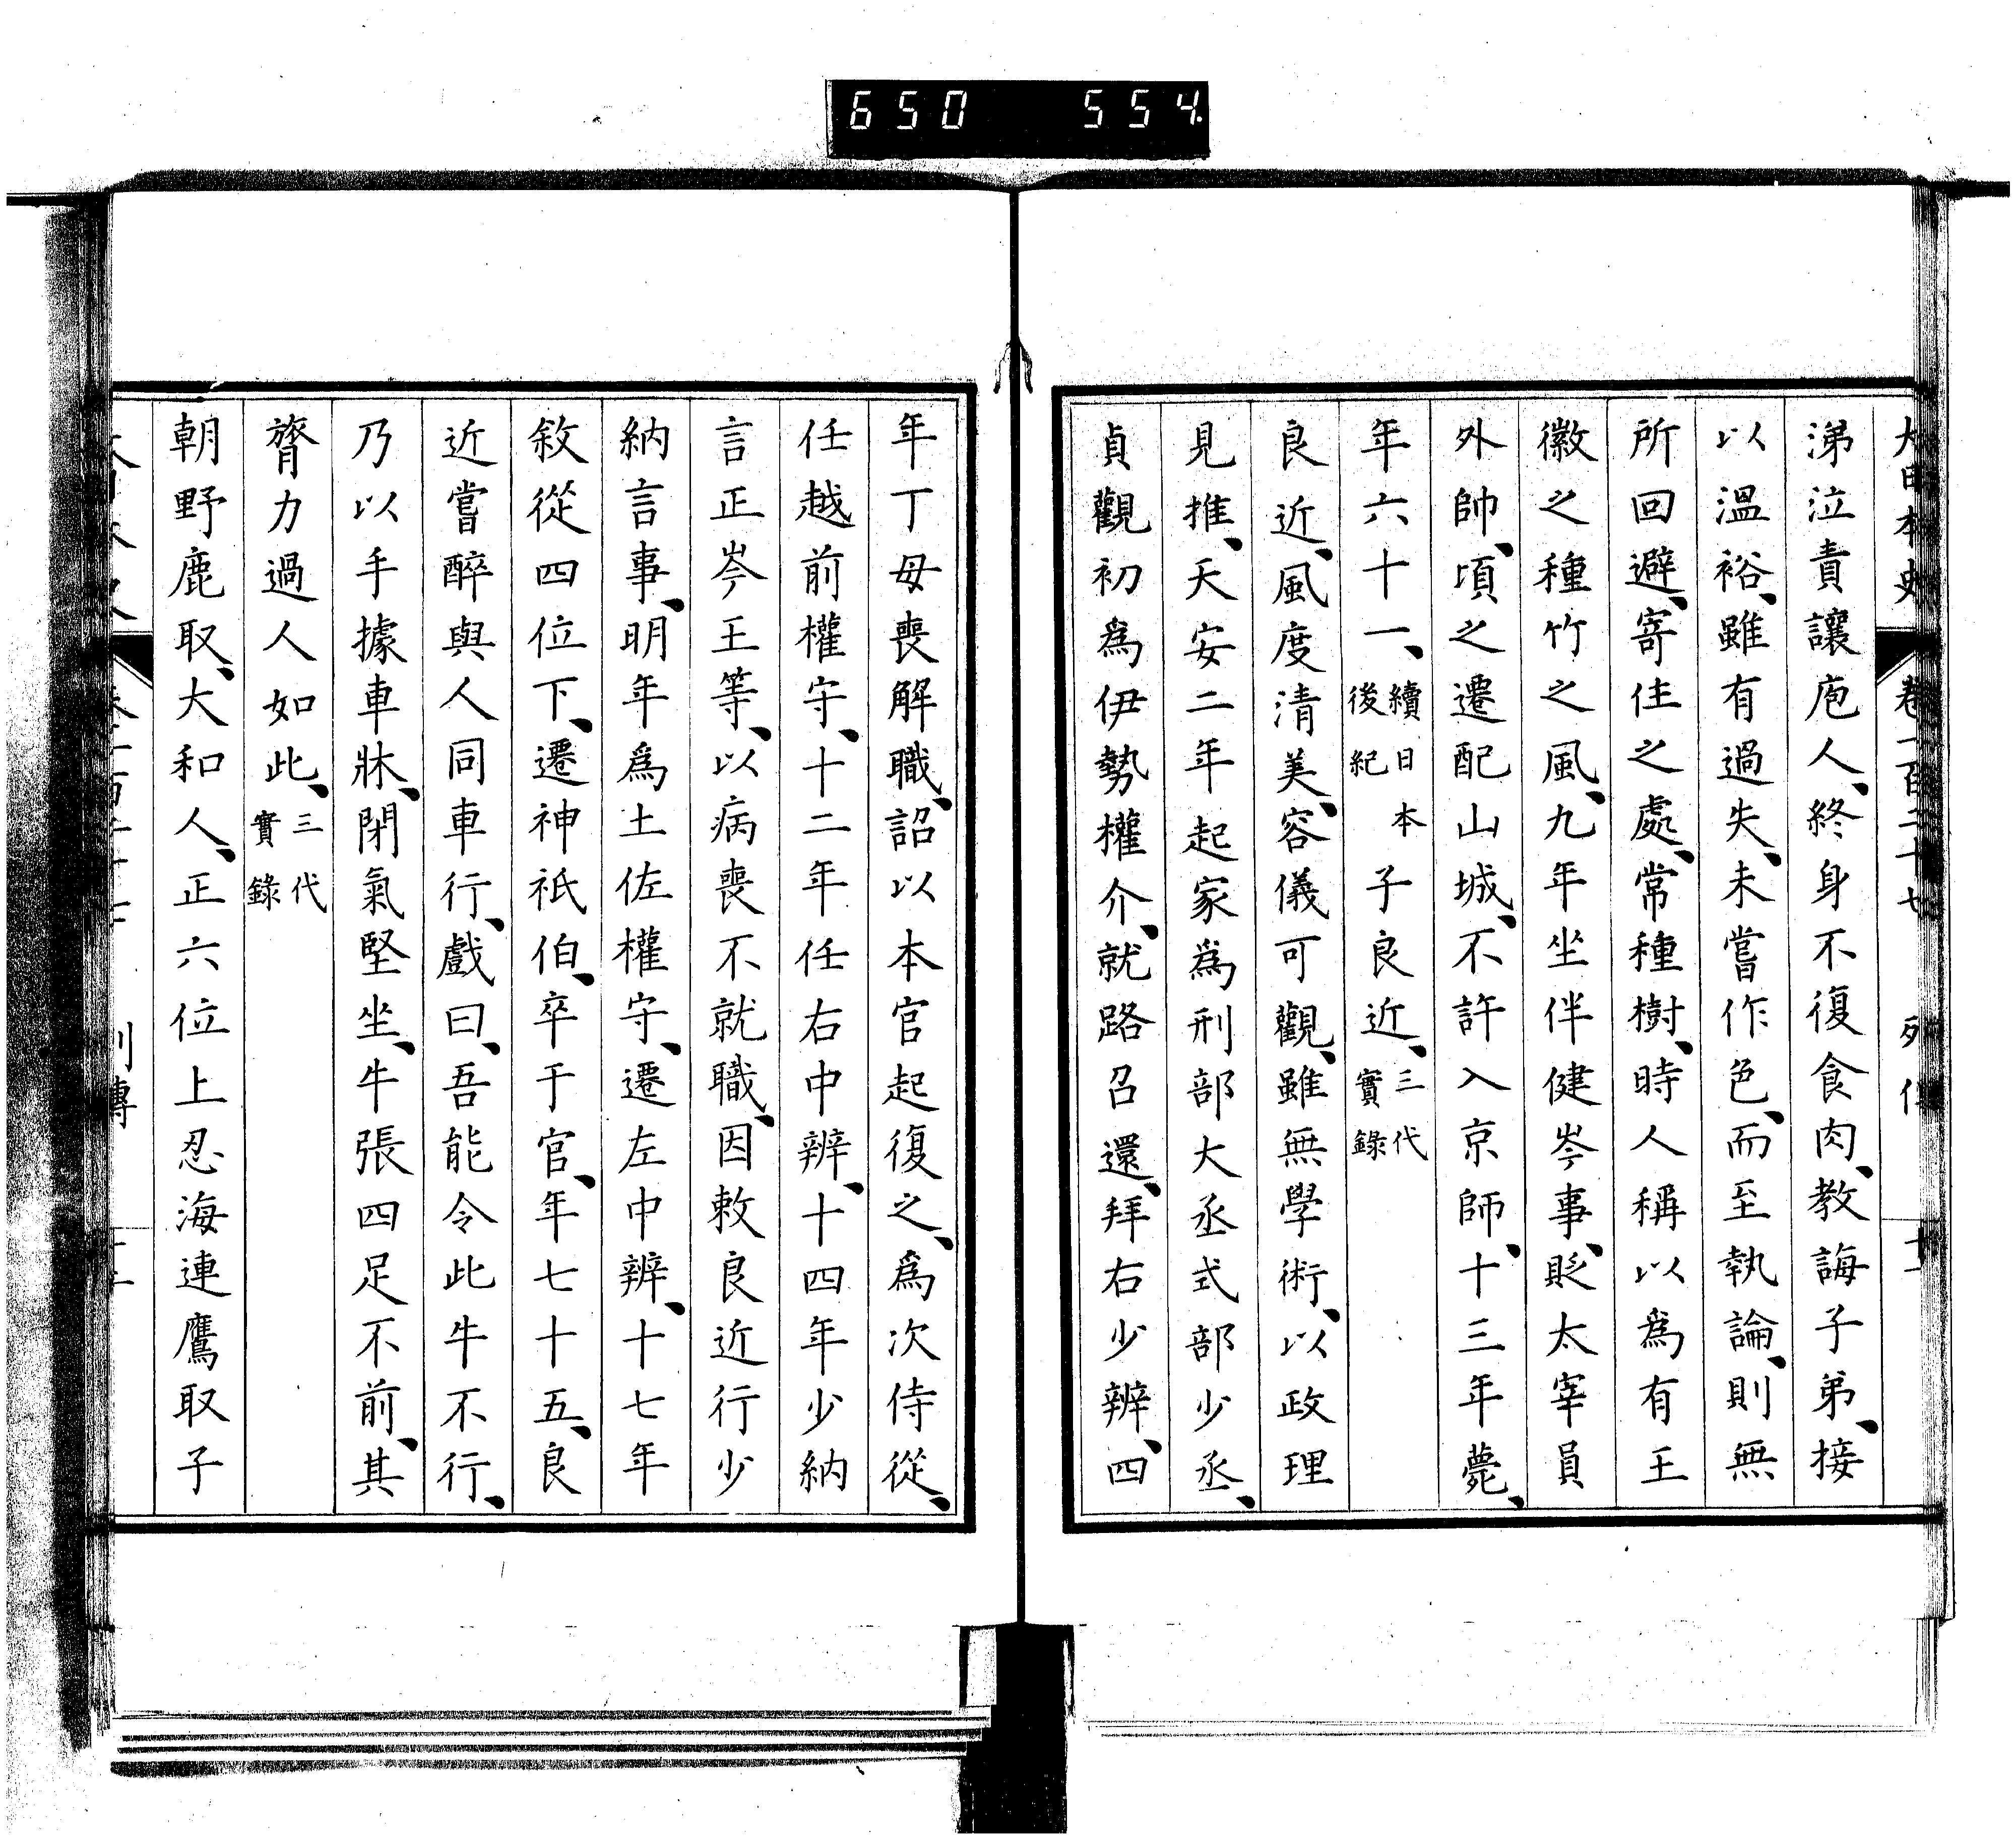 650 554
大日本史 卷一百二十七 列傳 十一
涕泣責讓庖人、終身不復食肉、教誨子弟、接
以溫裕、雖有過失、未嘗作色、而至執論、則無
所回避、寄住之處、常種樹、時人稱以爲有王
徽之種竹之風、九年坐伴健岑事、貶太宰員
外帥、頃之遷配山城、不許入京師、十三年薨、
年六十一、續日本後紀 子良近、三代實錄
良近、風度清美、容儀可觀、雖無學術、以政理
見推、天安二年起家爲刑部大丞式部少丞、
貞觀初爲伊勢權介、就路召還、拜右少辨、四
年丁母喪解職、詔以本官起復之、爲次侍從、
任越前權守、十二年任右中辨、十四年少納
言正岑王等、以病喪不就職、因敕良近行少
納言事、明年爲土佐權守、遷左中辨、十七年
敘從四位下、遷神祇伯、卒于官、年七十五、良
近嘗醉與人同車行、戲曰、吾能令此牛不行、
乃以手據車牀、閉氣堅坐、牛張四足不前、其
膂力過人如此、三代實錄
朝野鹿取、大和人、正六位上忍海連鷹取子
列傳